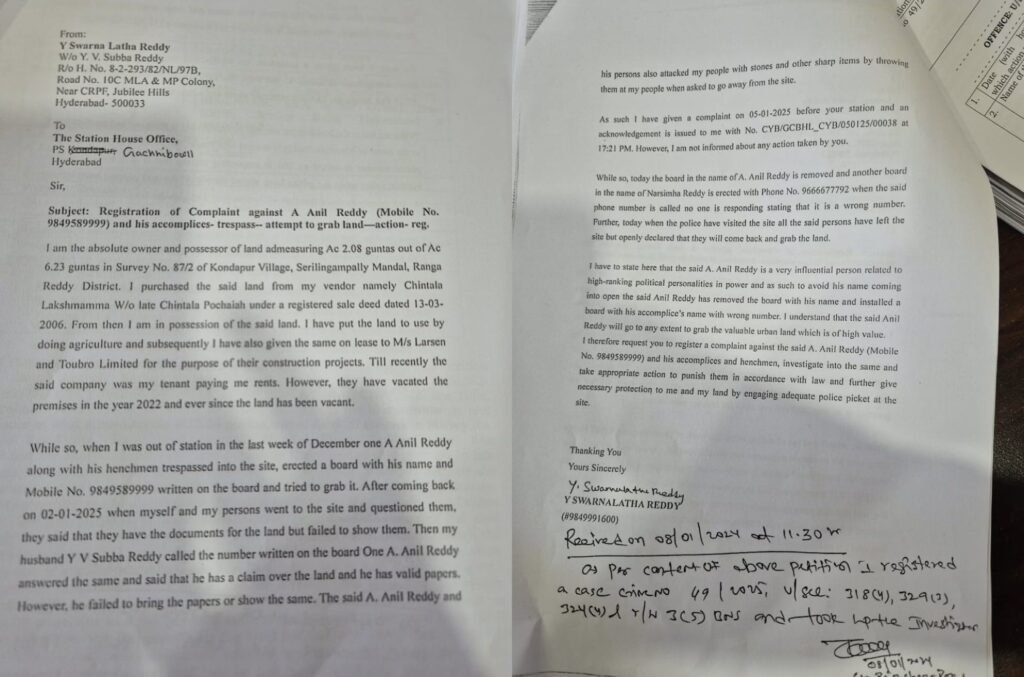 From:
Y Swarna Latha Reddy
W/o Y. V. Subba Reddy
R/o H. No. 8-2-293/82/NL/97B,
Road No. 10C MLA & MP Colony,
Near CRPF, Jubilee Hills
Hyderabad- 500033
To
The Station House Office,
PS Kondapur, Gachhibowli
Hyderabad
Sir,
Subject: Registration of Complaint against A Anil Reddy (Mobile No.
9849589999) and his accomplices- trespass-- attempt to grab land—action- reg.
I am the absolute owner and possessor of land admeasuring Ac 2.08 guntas out of Ac
6.23 guntas in Survey No. 87/2 of Kondapur Village, Serilingampally Mandal, Ranga
Reddy District. I purchased the said land from my vendor namely Chintala
Lakshmamma W/o late Chintala Pochaiah under a registered sale deed dated 13-03-
2006. From then I am in possession of the said land. I have put the land to use by
doing agriculture and subsequently I have also given the same on lease to M/s Larsen
and Toubro Limited for the purpose of their construction projects. Till recently the
said company was my tenant paying me rents. However, they have vacated the
premises in the year 2022 and ever since the land has been vacant.
While so, when I was out of station in the last week of December one A Anil Reddy
along with his henchmen trespassed into the site, erected a board with his name and
Mobile No. 9849589999 written on the board and tried to grab it. After coming back
on 02-01-2025 when myself and my persons went to the site and questioned them,
they said that they have the documents for the land but failed to show them. Then my
husband Y V Subba Reddy called the number written on the board One A. Anil Reddy
answered the same and said that he has a claim over the land and he has valid papers.
However, he failed to bring the papers or show the same. The said A. Anil Reddy and
his persons also attacked my people with stones and other sharp items by throwing
them at my people when asked to go away from the site.
As such I have given a complaint on 05-01-2025 before your station and an
acknowledgement is issued to me with No. CYB/GCBHL_CYB/050125/00038 at
17:21 PM. However, I am not informed about any action taken by you.
While so, today the board in the name of A. Anil Reddy is removed and another board
in the name of Narsimha Reddy is erected with Phone No. 9666677792 when the said
phone number is called no one is responding stating that it is a wrong number.
Further, today when the police have visited the site all the said persons have left the
site but openly declared that they will come back and grab the land.
I have to state here that the said A. Anil Reddy is a very influential person related to
high-ranking political personalities in power and as such to avoid his name coming
into open the said Anil Reddy has removed the board with his name and installed a
board with his accomplice's name with wrong number. I understand that the said Anil
Reddy will go to any extent to grab the valuable urban land which is of high value.
I therefore request you to register a complaint against the said A. Anil Reddy (Mobile
No. 9849589999) and his accomplices and henchmen, investigate into the same and
take appropriate action to punish them in accordance with law and further give
necessary protection to me and my land by engaging adequate police picket at the
site.
Thanking You
Yours Sincerely
Y. Swarnalatha Reddy
Y SWARNALATHA REDDY
(#9849991600)
Received on 08/01/2024 at 11.30 hr
as per content of above petition I registered
a case crime no 49/2025, U/sec: 318(4), 329(3),
324(4) r/w 3(5) BNS and took up the Investigation
08/01/24
OFFENCE: U/
1. Date (with
which action
2. Name of